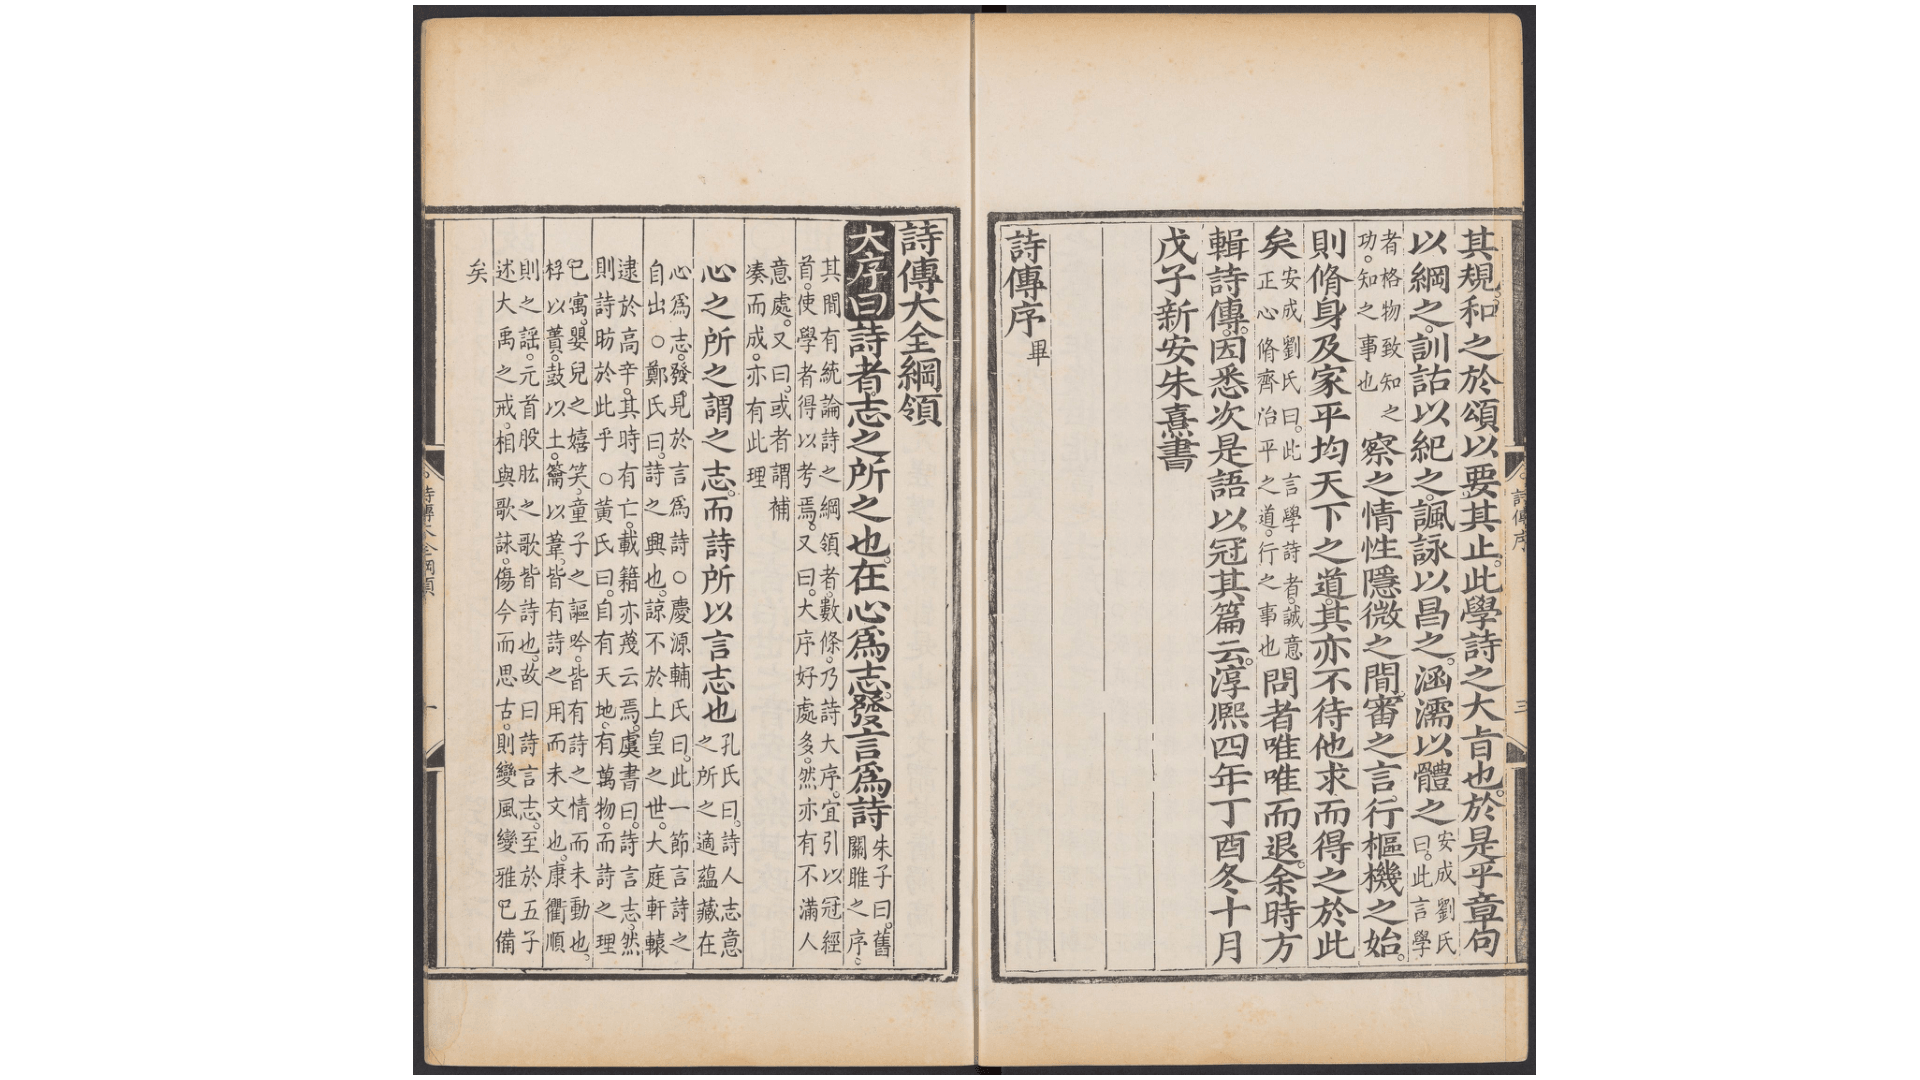 其規。和之於頌以要其止。此學詩之大旨也。於是乎章句
以綱之。訓詁以紀之。諷詠以昌之。涵濡以體之安成劉氏曰。此言學
者格物致知之功。知之事也察之情性隱微之間。審之言行樞機之始。
則脩身及家平均天下之道。其亦不待他求而得之於此
矣安成劉氏曰。此言學詩者。誠意正心脩齊治平之道。行之事也問者唯唯而退。余時方
輯詩傳。因悉次是語以冠其篇云。淳熙四年丁酉冬十月
戊子新安朱熹書
詩傳序畢
詩傳序
三
詩傳大全綱領
大序曰詩者。志之所之也。在心爲志。發言爲詩朱子曰。舊關雎之序。
其間有統論詩之綱領者。數條。乃詩大序。宜引以冠經
首。使學者得以考焉。又曰。大序好處多。然亦有不滿人
意處。又曰。或者謂補
湊而成。亦有此理
心之所之謂之志。而詩所以言志也孔氏曰。詩人志意之所之適蘊藏在
心爲志。發見於言爲詩○慶源輔氏曰。此一節言詩之
自出○鄭氏曰。詩之興也。諒不於上皇之世。大庭軒轅
逮於高辛。其時有亡。載籍亦蔑云焉。虞書曰。詩言志。然
則詩昉於此乎○黃氏曰。自有天地。有萬物。而詩之理
已寓。嬰兒之嬉笑。童子之謳吟。皆有詩之情而未動也。
桴以蕢。鼓以土。籥以葦。皆有詩之用而未文也。康衢順
則之謠。元首股肱之歌。皆詩也。故曰詩言志。至於五子
述大禹之戒。相與歌詠。傷今而思古。則變風變雅已備
矣